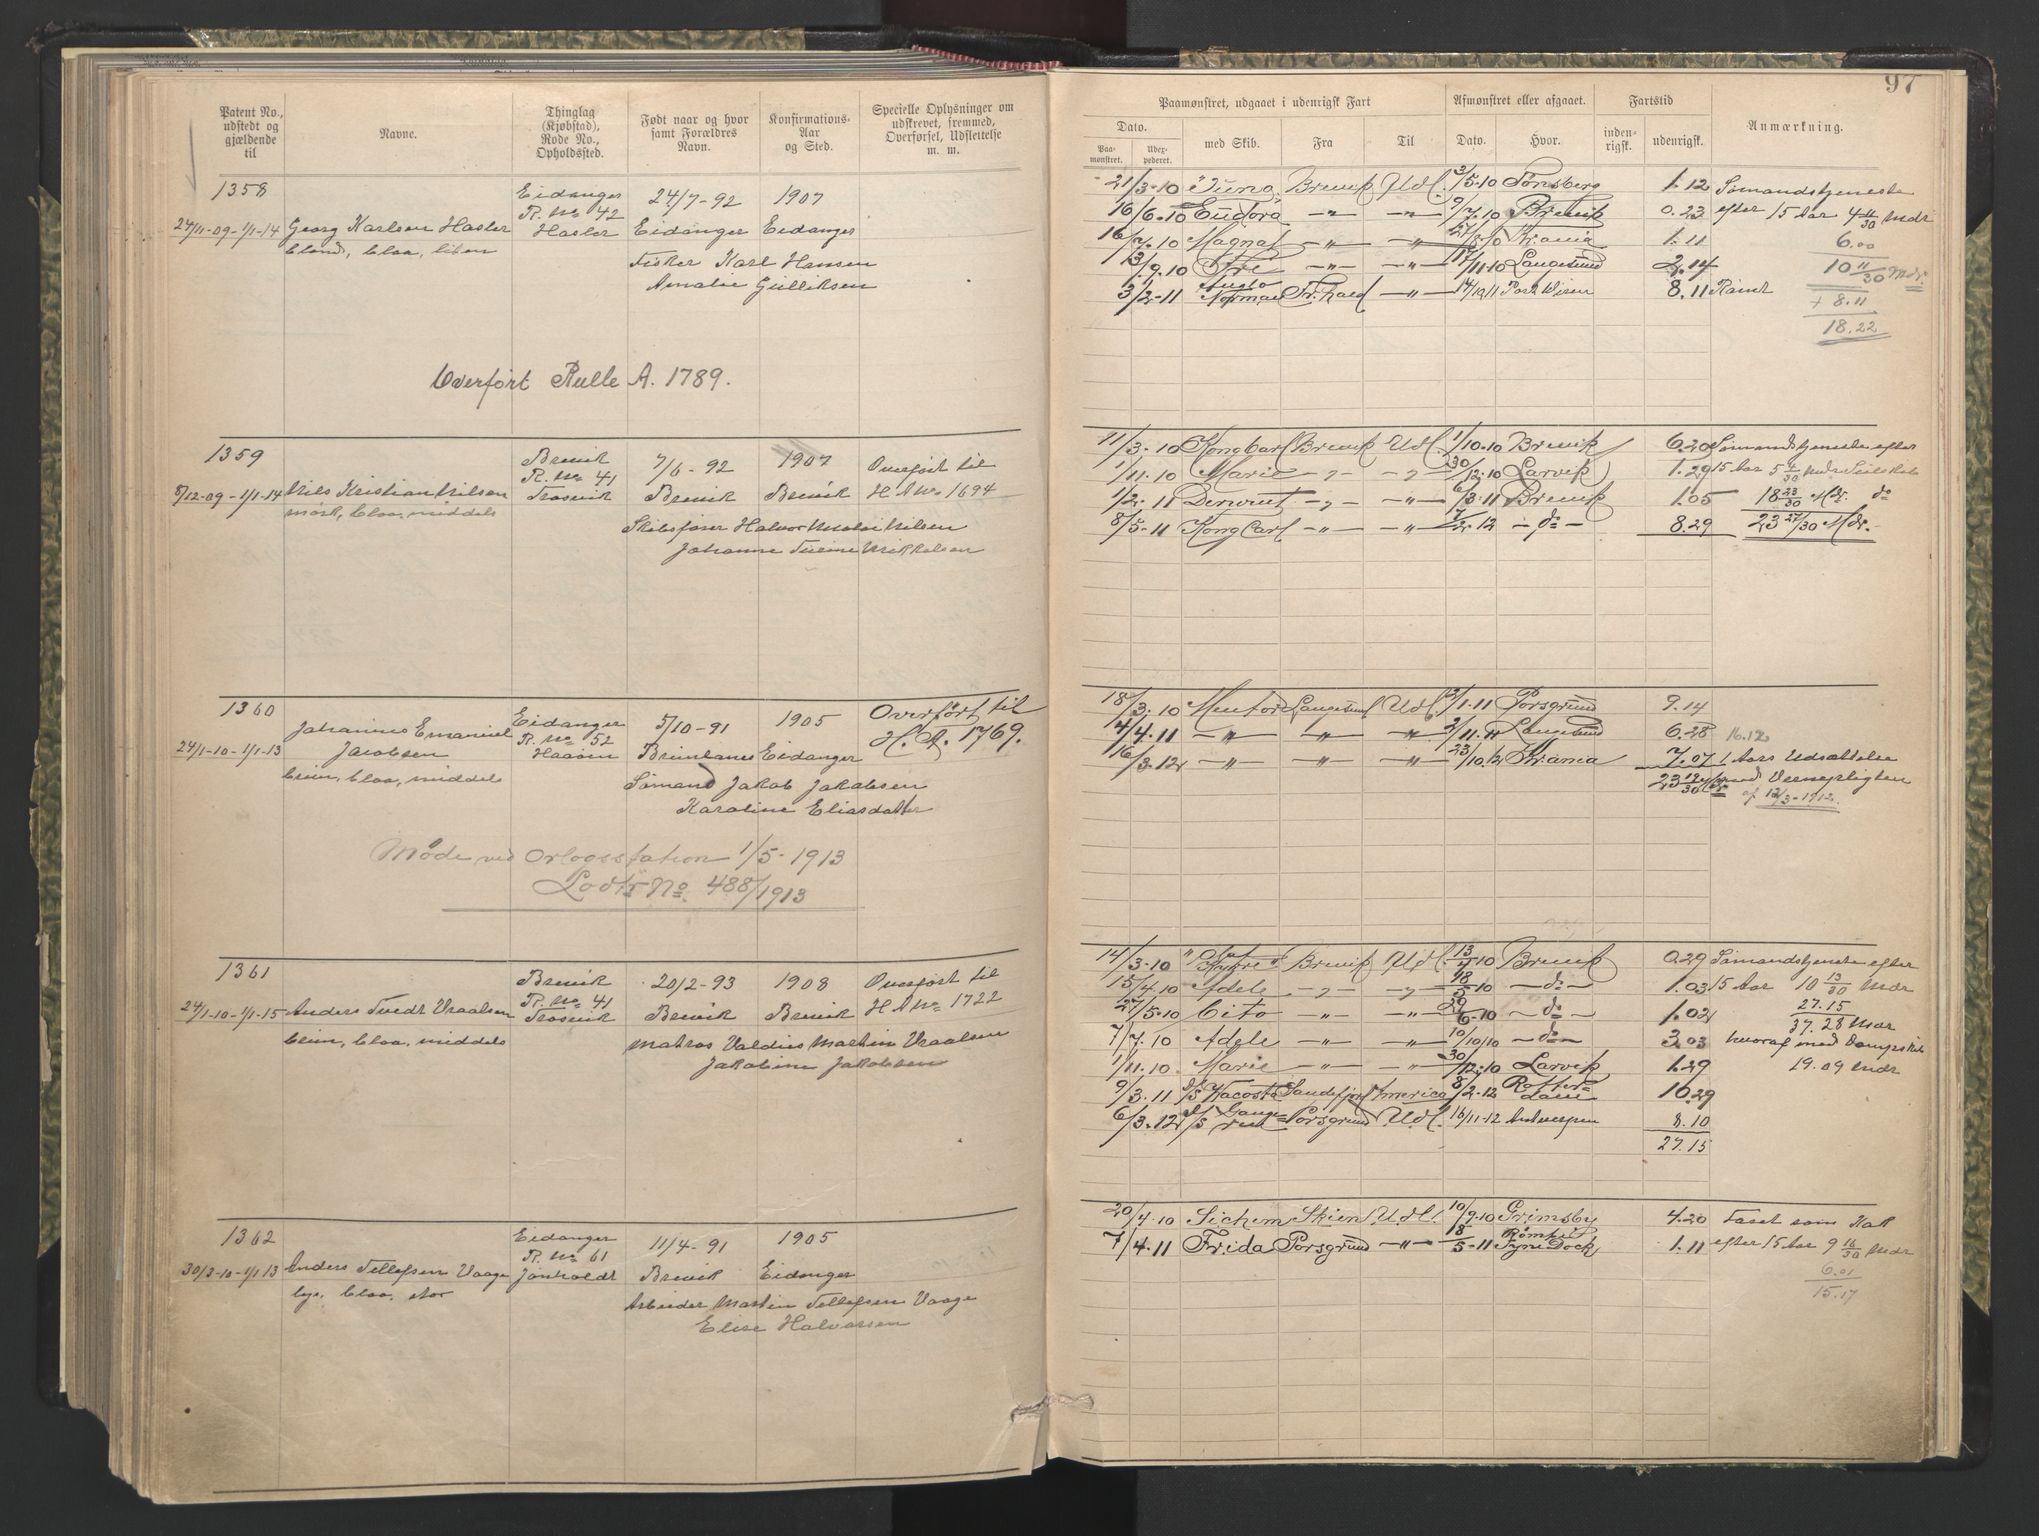 97
Patent No., udstedt og gjældende til
Navne.
Thinglag (Kjøbstad), Rode No., Opholdssted.
Født naar og hvor samt Forældres Navn.
Konfirmations-Aar og Sted.
Specielle Oplysninger om udskrevet, fremmed, Overførsel, Udslettelse m. m.
Paamønstret, udgaaet i udenrigsk Fart
Afmønstret eller afgaaet.
Fartstid
Anmærkning.
Dato.
med Skib.
Fra
Til
Dato.
Hvor.
inden-rigsk.
udenrigsk.
Paa-mønstret.
Udex-pederet.
1358 Eidanger 24/7-92 1907
R. No 42
24/11-09-1/1-14 Georg Karlsen Hasler Hasler Eidanger Eidanger
blond, blaa, liten
Fisker Karl Hansen
Amalie Gulliksen
Overført Rulle A. 1789.
21/3-10 "Juno Brevik Udl. 3/5-10 Tønsberg 1.12 Sømandstjeneste
16/6.10 Eudora -"- -"- 9/7.10 Brevik 0.23 efter 15 Aar 4 11/30 Mdr
16/7.10 Magnat -"- -"- 27/8/10 Krania 1.11 6.00
13/9.10 -"- -"- 17/11-10 Langesund 2.14 10 11/30 Mdr.
3/2-11 Norman Fr.hald -"- 14/10/11 Port 8.11 Rømt + 8.11
18.22
1359 Brevik 7/6-92 1907 Overført til
R. No 41
8/12-09-1/1-14 Nils Kristian Nilsen Trosvik Brevik Brevik H A No 1694
mørk, blaa, middels
Skibsfører Halvor Nicolai Nilsen
Johanne Mikkelsen
11/3.10 Kong Carl Brevik Udl. 1/10-10 Brevik 6.20 Sømandstjeneste efter
1/11.10 Marie -„- -„- 30/12.10 Larvik 1.29 15 Aar 5 4/30 Mdr Seilskib
1/2.11 Derwent -„- -"- 6/3.11 Brevik 1.05 18 23/30 Mdr. do
8/5-11 Kong Carl -"- -"- 7/2.12 -do- 8.29 23 27/30 Mdr.
1360 Eidanger 5/10-91 1905 Overført til
R. No 52
24/1-10-1/1-13 Johannes Emanuel Jacobsen Haaøen Eidanger H. A. 1769.
brun, blaa, middels
Sømand Jakob Jakobsen
Karoline Eliasdatter
Møde ved Orlogsstation 1/5-1913
Lodtr No. 488/1913
18/3.10 Mentor Langesund Udl. 3/1-11 Porsgrund 9.14
4/4.11 -"- -"- -"- 2/11.11 Langesund 6.28 16.12
16/3.12 -"- -"- -"- 23/10.12 Krania 7.07 1 Aars Udsættelse
23 19/30 Mdr med Vernepligten
af 12/3-1912.
1361 Brevik 20/2-93 1908 Overført til
R. No 41
24/1-10-1/1-15 Anders Tvedt Vraalsen Trosvik Brevik Brevik H A No 1722
brun, blaa, middels
Matros Valdius Martin Vraalsen
Jakobine Jakobsen
14/3.10 "Olaf Kyrre" Brevik Udl. 13/4-10 Brevik 0.29 Sømandstjeneste efter
15/4.10 Adele -„- -„- 18/5.10 -do- 1.03 15 Aar 10 13/30 Mdr
27/5-10 Cito -"- -"- 29/6-10 -do- 1.02 27.15
7/7.10 Adele -"- -"- 10/10/10 -do- 3.03 37.28 Mdr
1/11.10 Marie -"- -"- 30/12.10 Larvik 1.29 hvoraf med Dampskib
19.09 Mdr
9/3.11 D/S Kacosta Sandefjord America 8/2-12 Rotterdam 10.29
6/3.12 Porsgrund Udl. 16/11-12 Antverpen 8.10
27.15
1362 Eidanger 11/4-91 1905
R. No 61
30/3-10-1/1 13 Anders Tellefsen Vaage Jønholdt Brevik Eidanger
lys, blaa, stor
Arbeider Martin Tellefsen Vaage
Elise Halvorsen
20/4.10 Sichem Skien Udl. 10/9-10 Grimsby 4.20 Faret som Kok
7/4.11 Frida Porsgrund -"- 18/5-11 Rømt Tyne Dock 1.11 efter 15 Aar 9 16/30 Mdr
6.01
15.17